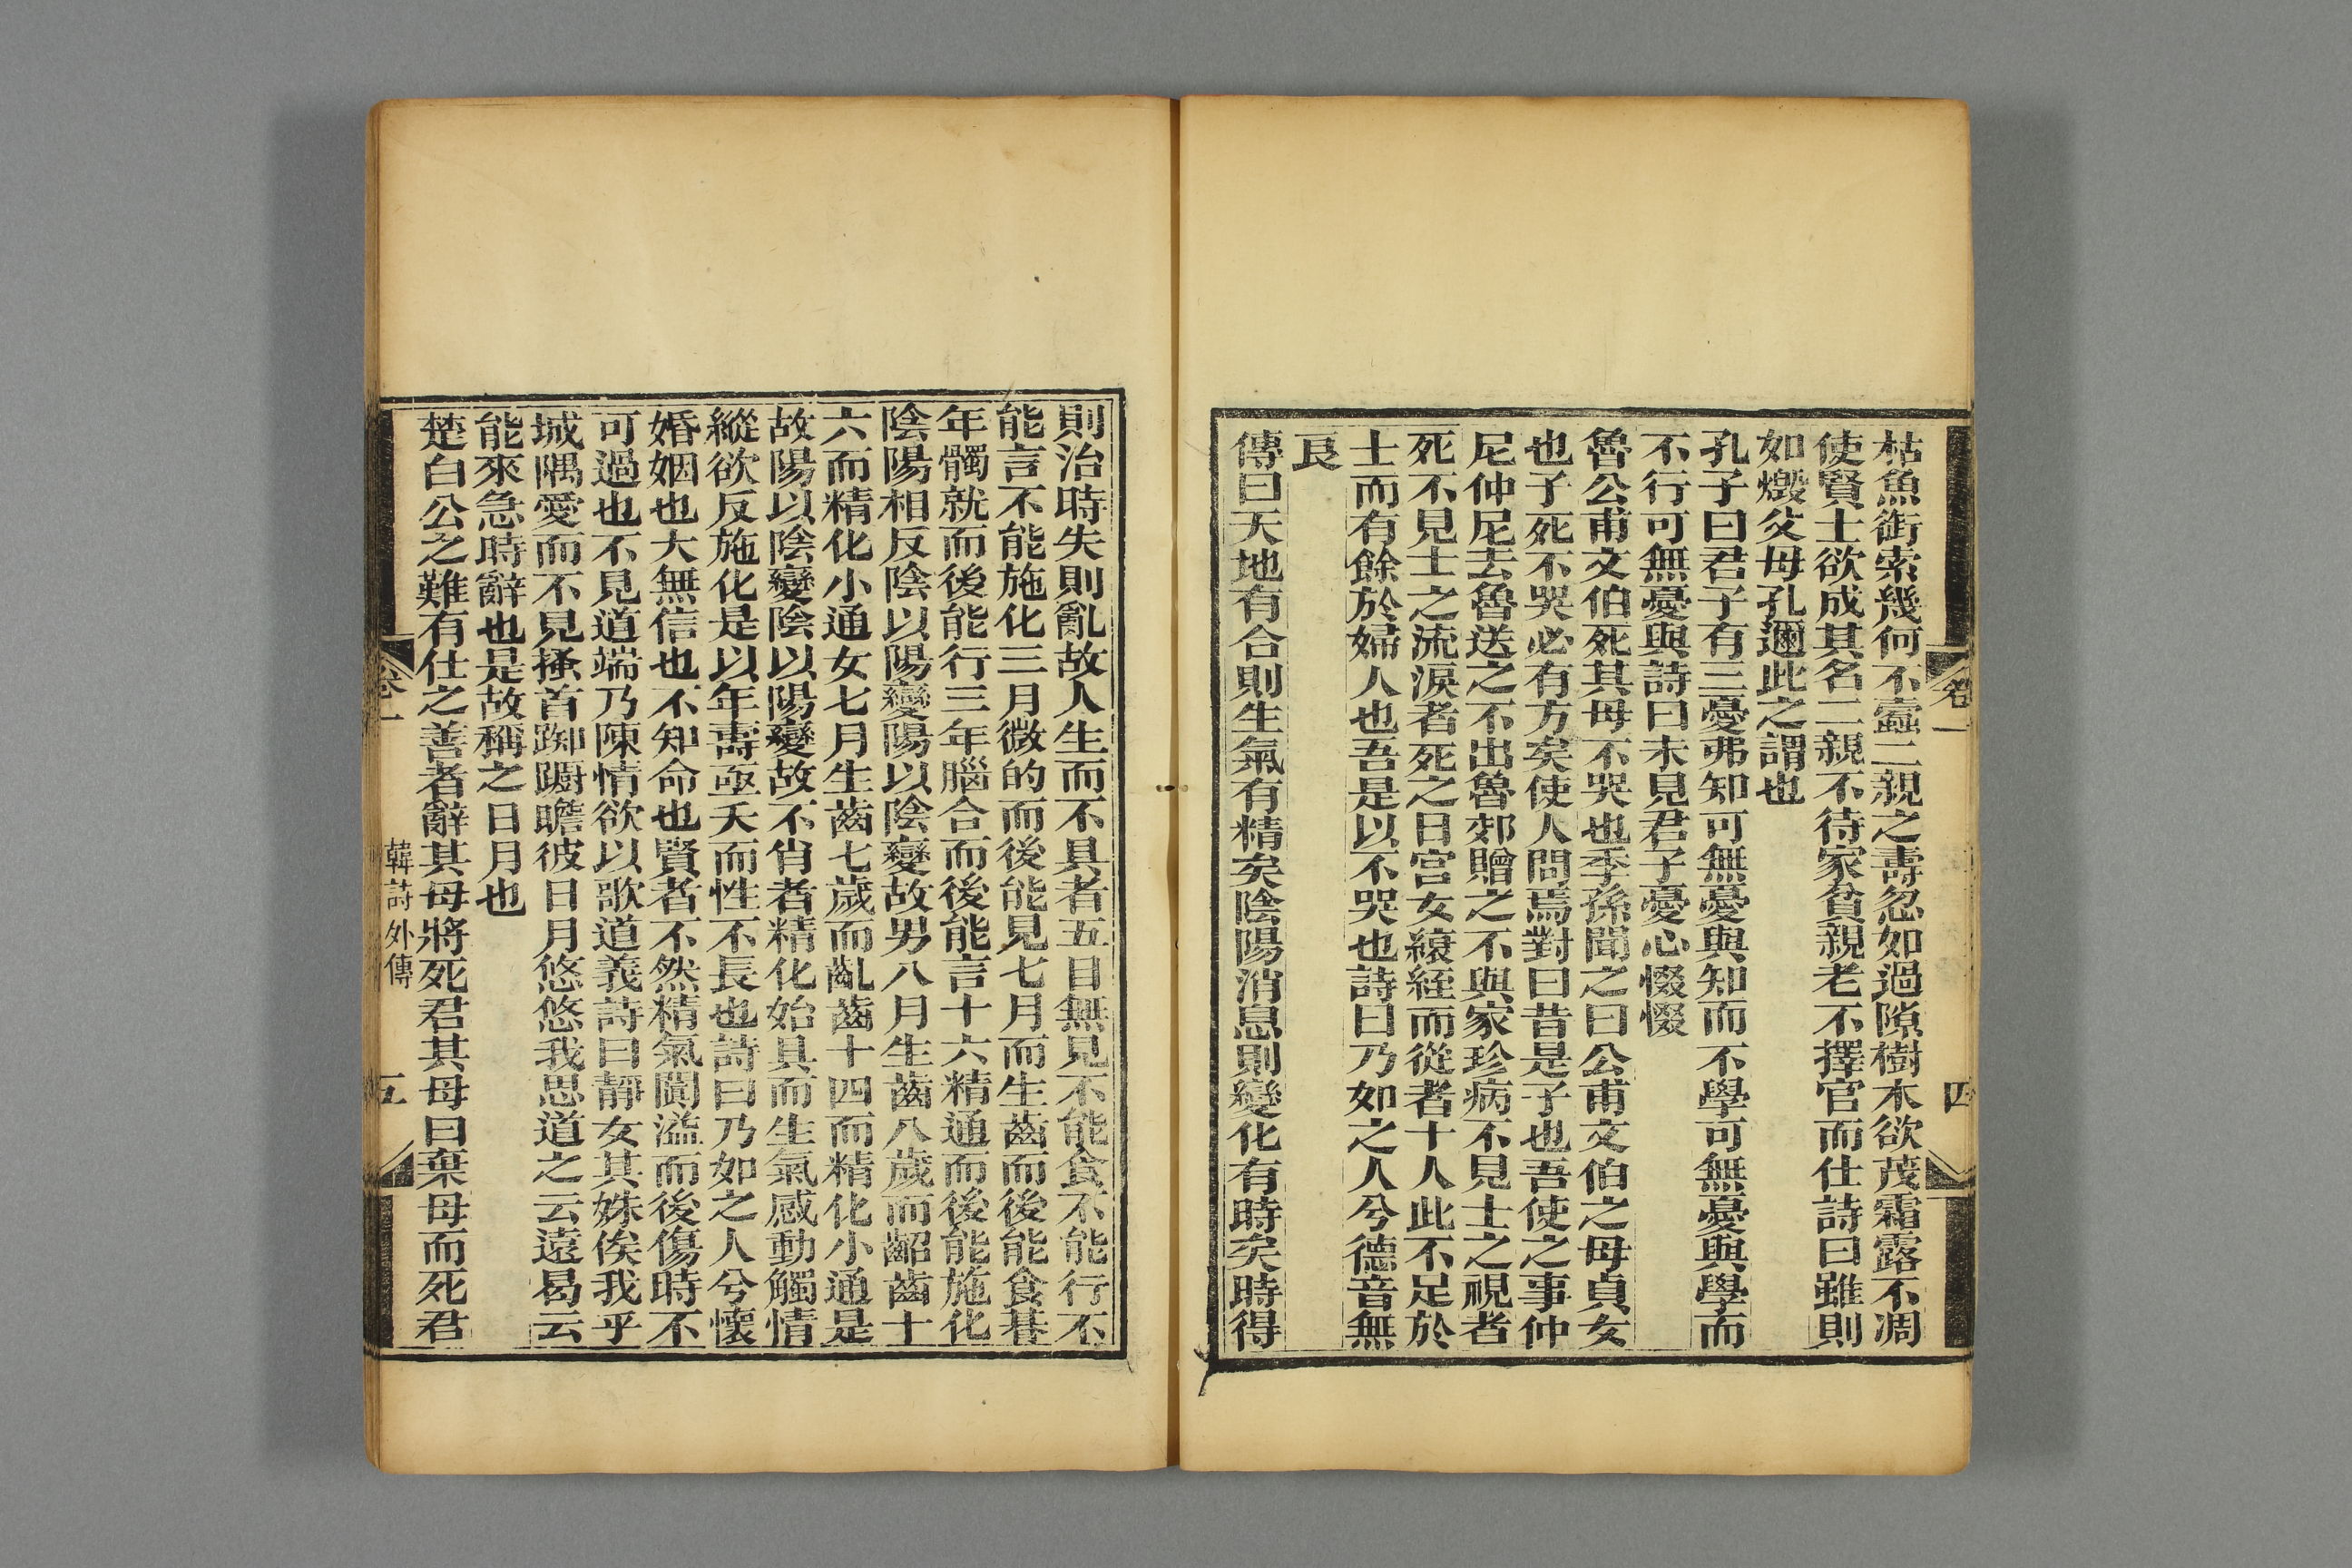 枯魚銜索幾何不蠧二親之壽忽如過隙樹木欲茂霜露不凋
使賢士欲成其名二親不待家貧親老不擇官而仕詩曰雖則
如燬父母孔邇此之謂也
孔子曰君子有三憂弗知可無憂與知而不學可無憂與學而
不行可無憂與詩曰未見君子憂心惙惙
魯公甫文伯死其母不哭也季孫聞之曰公甫文伯之母貞女
也子死不哭必有方矣使人問焉對曰昔是子也吾使之事仲
尼仲尼去魯送之不出魯郊贈之不與家珍病不見士之視者
死不見士之流淚者死之日宮女縗絰而從者十人此不足於
士而有餘於婦人也吾是以不哭也詩曰乃如之人兮德音無
良
傳曰天地有合則生氣有精矣陰陽消息則變化有時矣時得
卷一
四
則治時失則亂故人生而不具者五目無見不能食不能行不
能言不能施化三月微的而後能見七月而生齒而後能食朞
年髑就而後能行三年腦合而後能言十六精通而後能施化
陰陽相反陰以陽變陽以陰變故男八月生齒八歲而齠齒十
六而精化小通女七月生齒七歲而齓齒十四而精化小通是
故陽以陰變陰以陽變故不肖者精化始具而生氣感動觸情
縱欲反施化是以年壽亟夭而性不長也詩曰乃如之人兮懷
婚姻也大無信也不知命也賢者不然精氣闐溢而後傷時不
可過也不見道端乃陳情欲以歌道義詩曰靜女其姝俟我乎
城隅愛而不見搔首踟躕瞻彼日月悠悠我思道之云遠曷云
能來急時辭也是故稱之日月也
楚白公之難有仕之善者辭其母將死君其母曰棄母而死君
卷一
韓詩外傳
五